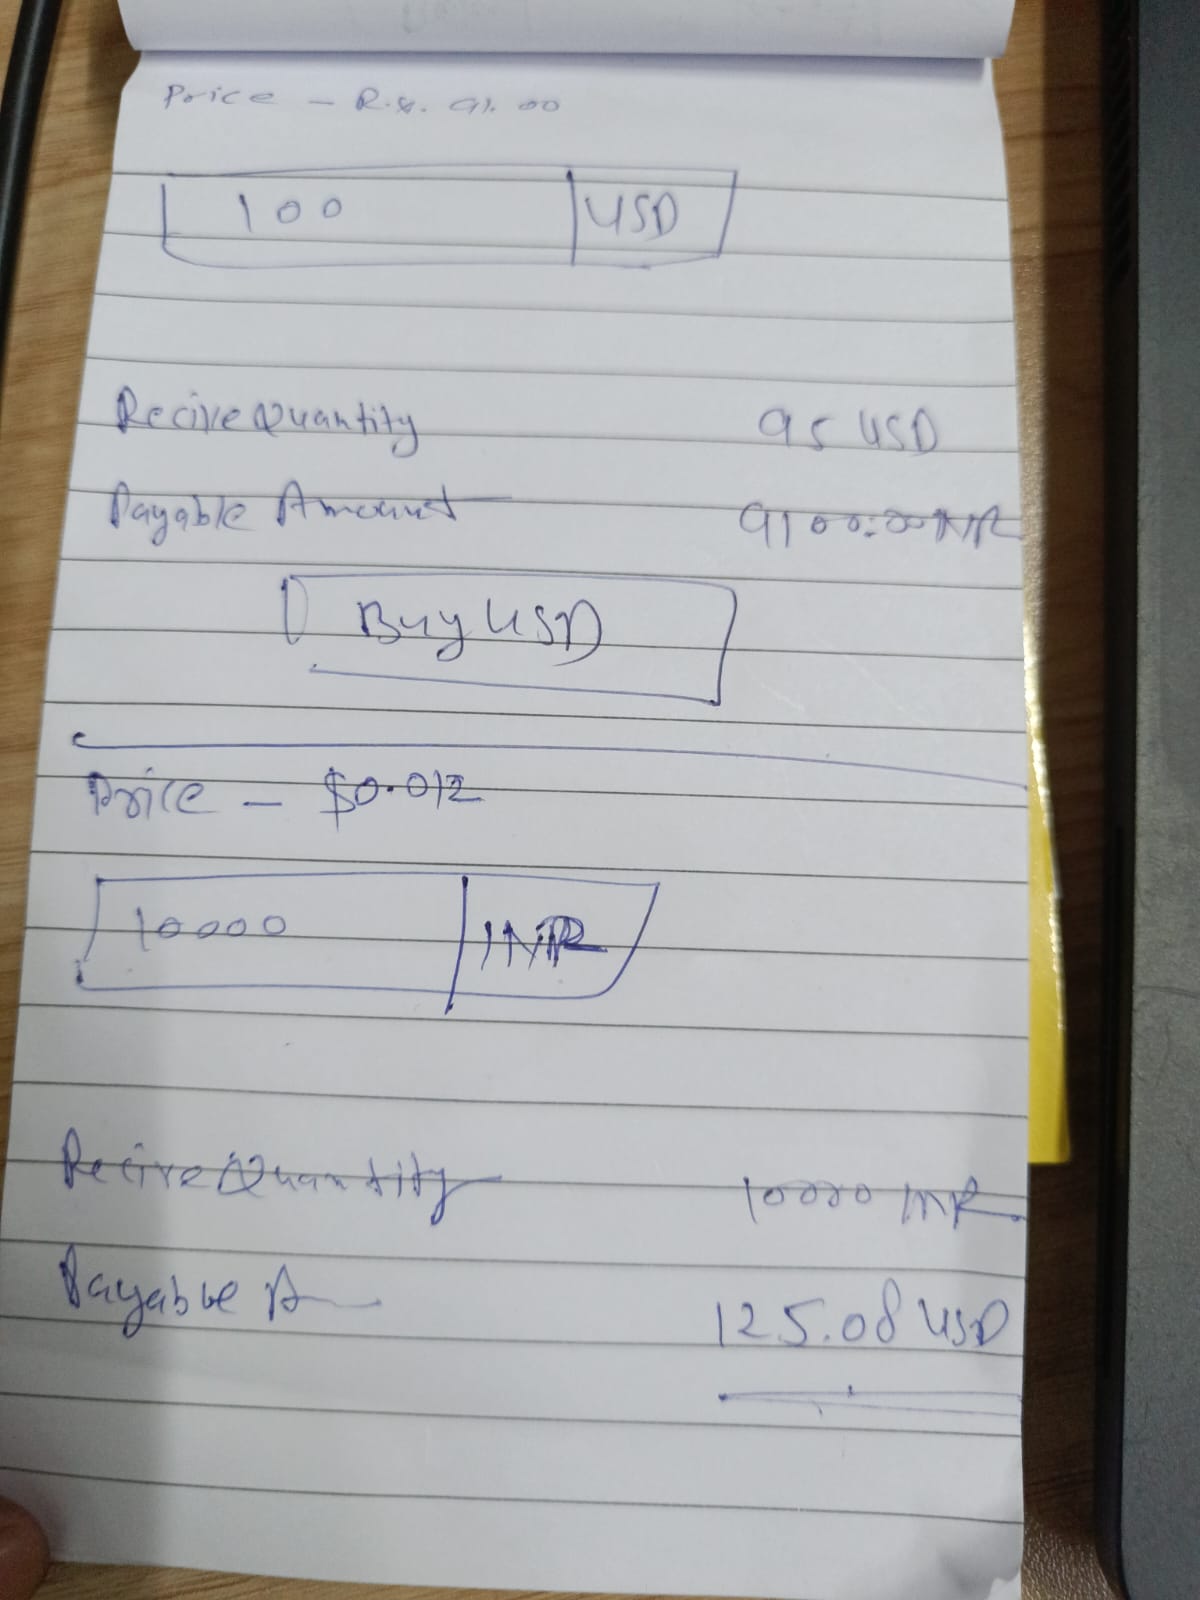 Price - R.s. 91.00
100 USD
Recive Quantity 95 USD
Payable Amount 9100.00 INR
Buy USD
Price - $0.012
10000 INR
Recive Quantity 10000 INR
Payable A 125.08 USD